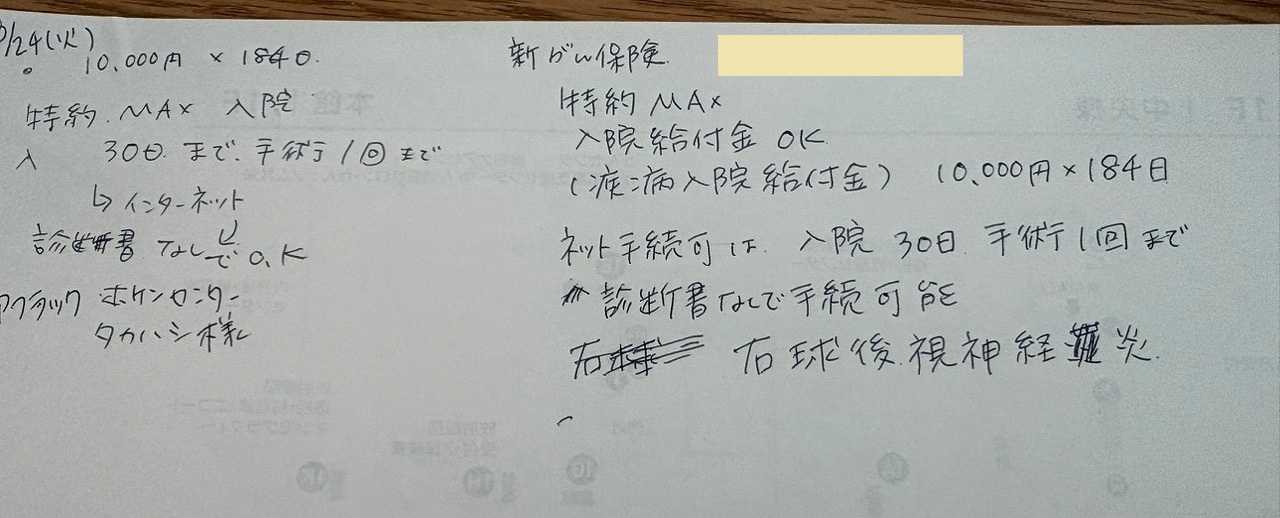 /24(火)
10,000円 × 184日.
特約. MAX 入院
入 30日.まで.手術1回まで
↳ インターネット
診断書 なしでO.K
アフラック ホケンセンター
タカハシ様
新がん保険.
特約 MAX
入院給付金 OK
(疾病入院給付金) 10,000円×184日
ネット手続可は. 入院 30日.手術1回まで
診断書なしで手続可能
右
右球後.視神経炎.